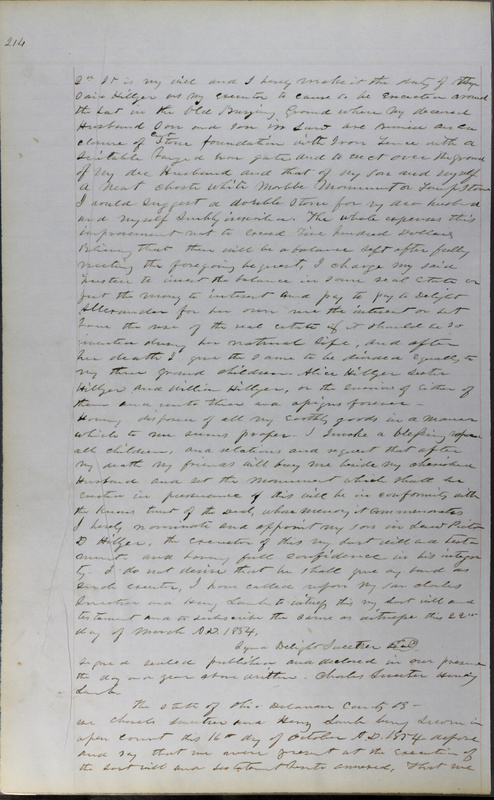 214
2nd It is my will and I hereby make it the duty of
Hillyer as my executor to cause to be erected around
the Lot in the Old Burying Ground where my deceased
Husband Son and Son in Law are Buried an en
closure of Stone foundation with Iron Fence with a
Suitable Iron gate and to erect over the ground
of my dec Husband and that of my Son and myself
A Neat white Marble Monument or Tomb Stone
I would suggest a double Stone for my dear husband
and myself The whole expenses this
improvement not to exceed Five hundred Dollars
Believing that there will be a balance left after fully
meeting the foregoing bequest, I charge my said
to invest the balance in some real Estate or
put the money to interest and pay to Delight
Allexander for her own use the interest or let
have the use of the real estate if it should be so
invested during her natural life, and after
her death I give the same to be divided equally to
my three grand children Alice Hillyer
Hillyer and William Hillyer, or the survivor of either of
them and unto their assigns forever
Having disposed of all my Earthly goods in a manner
which to me seems proper. I Invoke a blessing upon
all children, and relations and request that after
my death my friends will bury me beside my cherished
Husband and set the monument which shall be
erected in pursuance of this will be in conformity with
the known of the Dead, whose memory it commemorates
I hereby nominate and appoint my son in Law
D Hillyer, the executor of this my last will and testa
ment and having full confidence in his integri
ty I do not desire that he shall give any bond as
such executor, I have called upon my Son Charles
Sweetser and Henry Lamb to witness this my last will and
testament and to subscribe the same as witness this 22nd
day of March A.D. 1854,
Delight Sweetser Seal
Signed sealed published and declared in our presence
the day and year above written. Charles Sweetser Henry
Lamb
The State of Ohio Delaware County SS
we Charles Sweetser and Henry Lamb being Sworn in
open Court this 16th day of October A.D. 1854 depose
and say that we were present at the execution of
the last will and testament hereto annexed, that we